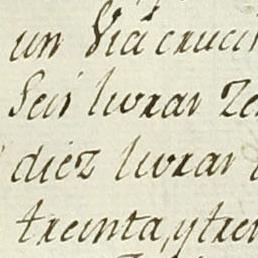 un Via cruci
Seis livras Ze
diez livras
treinta, y tre